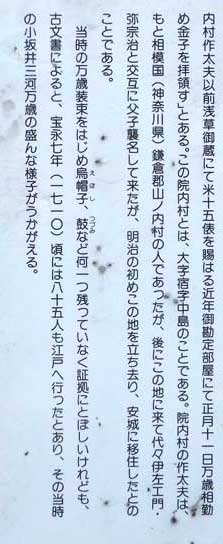 内村作太夫以前浅草御蔵にて米十五俵を賜はる近年御勘定部屋にて正月十一日万歳相勤
め金子を拝領す」とある。この院内村とは、大字宿字中島のことである。院内村の作太夫は、
もと相模国(神奈川県)鎌倉郡山ノ内村の人であつたが、後にこの地に来て代々伊左エ門・
弥宗治と交互に父子襲名して来たが、明治の初めこの地を立ち去り、安城に移住したとの
ことである。
当時の万歳装束をはじめ烏帽子、鼓など何一つ残っていなく証拠にとぼしいけれども、
古文書によると、宝永七年(一七一〇)頃には八十五人も江戸へ行つたとあり、その当時
の小坂井三河万歳の盛んな様子がうかがえる。
えぼし
つづみ